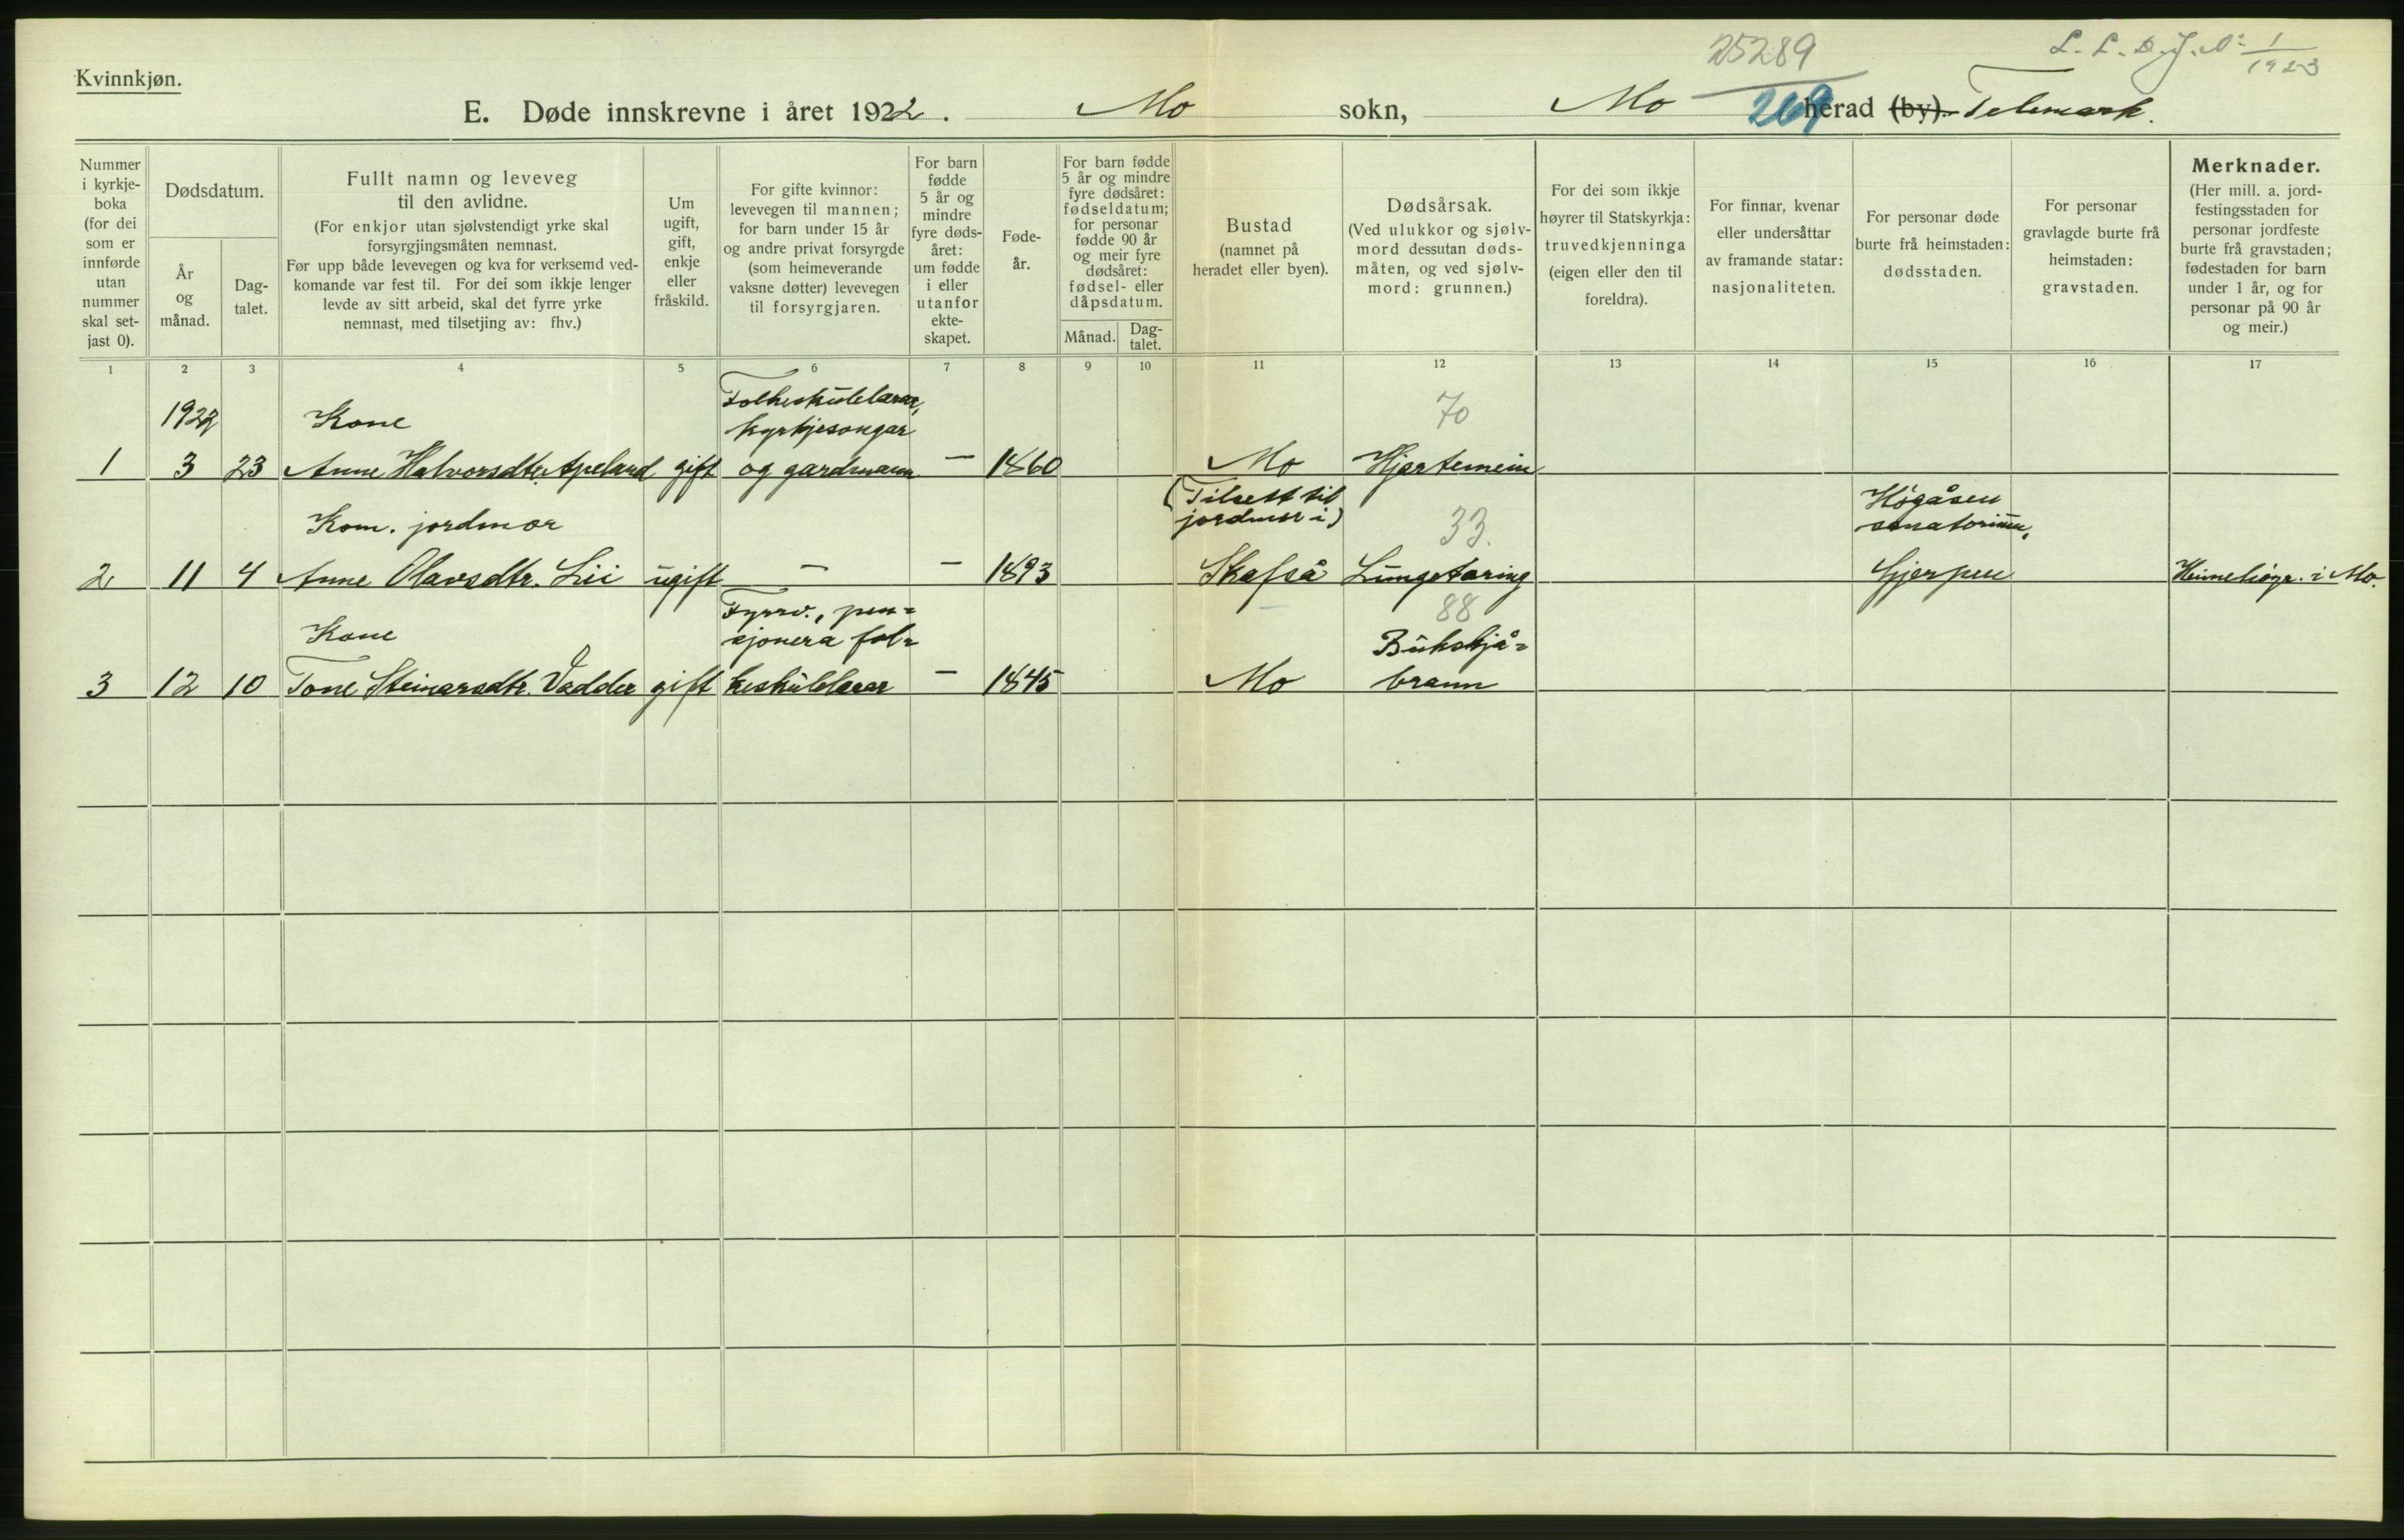 Kvinnkjøn.
25289
L. L. D. J. No 1/1923
E. Døde innskrevne i året 1922. Mo sokn, Mo 269 herad (by). Telemark.
Nummer
i kyrkje-
boka
(for dei
som er
innførde
utan
nummer
skal set-
jast 0).
Dødsdatum.
År
og
månad.
Dag-
talet.
Fullt namn og leveveg
til den avlidne.
(For enkjor utan sjølvstendigt yrke skal
forsyrgjingsmåten nemnast.
Før upp både levevegen og kva for verksemd ved-
komande var fest til. For dei som ikkje lenger
levde av sitt arbeid, skal det fyrre yrke
nemnast, med tilsetjing av: fhv.)
Um
ugift,
gift,
enkje
eller
fråskild.
For gifte kvinnor:
levevegen til mannen;
for barn under 15 år
og andre privat forsyrgde
(som heimeverande
vaksne døtter) levevegen
til forsyrgjaren.
For barn
fødde
5 år og
mindre
fyre døds-
året:
um fødde
i eller
utanfor
ekte-
skapet.
Føde-
år.
For barn fødde
5 år og mindre
fyre dødsåret:
fødseldatum;
for personar
fødde 90 år
og meir fyre
dødsåret:
fødsel- eller
dåpsdatum.
Månad.
Dag-
talet.
Bustad
(namnet på
heradet eller byen).
Dødsårsak.
(Ved ulukkor og sjølv-
mord dessutan døds-
måten, og ved sjølv-
mord: grunnen.)
For dei som ikkje
høyrer til Statskyrkja:
truvedkjenninga
(eigen eller den til
foreldra).
For finnar, kvenar
eller undersåttar
av framande statar:
nasjonaliteten.
For personar døde
burte frå heimstaden:
dødsstaden.
For personar
gravlagde burte frå
heimstaden:
gravstaden.
Merknader.
(Her mill. a. jord-
festingsstaden for
personar jordfeste
burte frå gravstaden;
fødestaden for barn
under 1 år, og for
personar på 90 år
og meir.)
1 2 3 4 5 6 7 8 9 10 11 12 13 14 15 16 17
Folkeskulelærar,
1922 Kone kyrkjesongar 70
1 3 23 Anne Halvorsdtr. Apeland gift og gardmann — 1860 Mo Hjartemein
(Tilsett til Høgåsen
Kom. jordmor jordmor i) 33. sanatorium,
2 11 4 Anne Olavsdtr. Lii ugift — — 1893 Skafså Lungetæring Gjerpen Heimehøyr. i Mo.
Fyrrv., pen- 88
Kone sjonera fol- Bukhjå-
3 12 10 Tone Steinarsdtr. Vadder gift keskulelærar — 1845 Mo brann